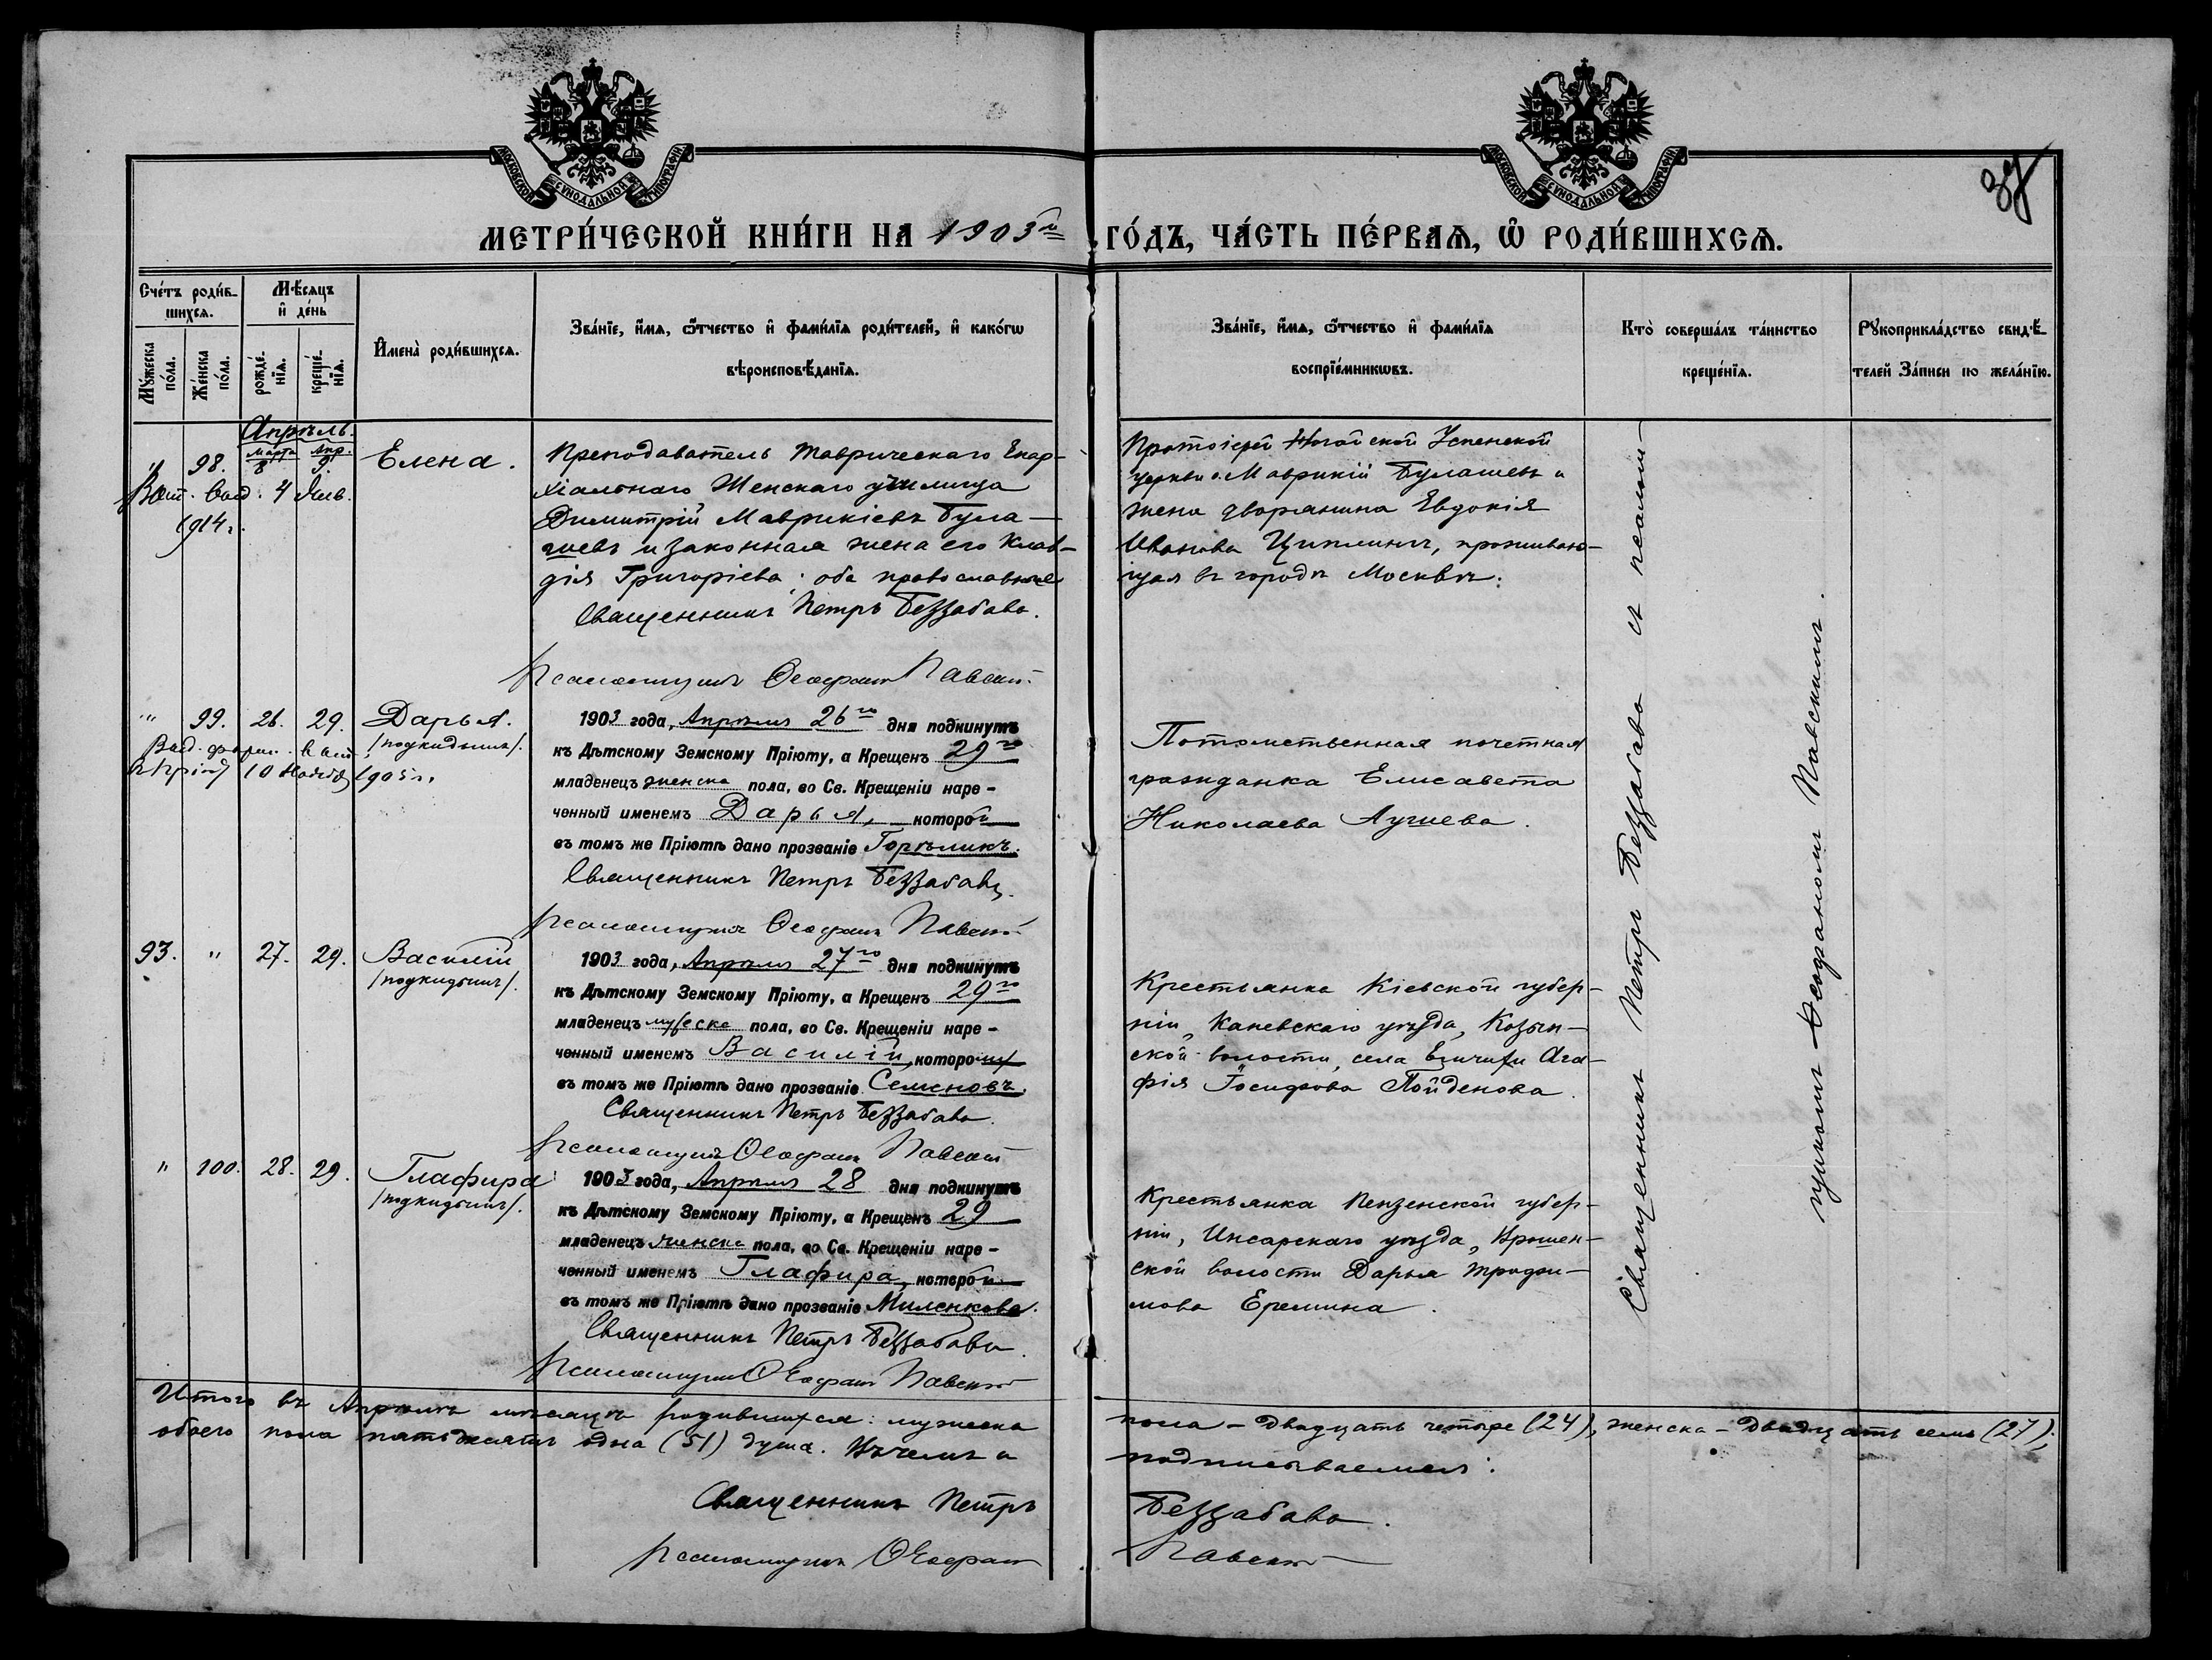 37
МОСКОВСКОЙ СУНОДАЛЬНОЙ ТИПОГРАФІИ
МОСКОВСКОЙ СУНОДАЛЬНОЙ ТИПОГРАФІИ
МЕТРИ́ЧЕСКОЙ КНИ́ГИ НА 1903го ГО́ДЪ, ЧА́СТЬ ПЕ́РВАѦ, Ѡ҆ РОДИ́ВШИХСѦ.
Сче́тъ роди́в-
шихсѧ.
Мѣ́сѧцъ
и҆ де́нь
Мꙋ́жеска
по́ла.
Же́нска
по́ла.
рожде́-
нїѧ.
креще́-
нїѧ.
И҆мена̀ роди́вшихсѧ.
Зва́нїе, и҆́мѧ, ѻ҆́тчество и҆ фами́лїѧ роди́телей, и҆ како́гѡ
вѣроисповѣ́данїѧ.
Зва́нїе, и҆́мѧ, ѻ҆́тчество и҆ фами́лїѧ
воспрїе́мникѡвъ.
Кто̀ соверша́лъ та́инство
креще́нїѧ.
Рꙋкоприкла́дство свидѣ́-
телей За́писи по жела́нїю.
Апрѣль.
Марта Апр.
" 98. 8 9. Елена.
Вып. выд. 4 Янв.
1914 г.
Преподаватель Таврическаго Епар-
хіальнаго Женскаго училища
Димитрій Маврикіевъ Була-
шевъ и законная жена его Клав-
дія Григоріева; оба православные
Священникъ Петръ Беззабава.
Псаломщикъ Ѳеофанъ Павскій
Протоіерей Ногайской Успенской
церкви о. Маврикій Булашевъ и
жена дворянина Евдокія
Иванова Циплинъ, проживаю-
щая въ городѣ Москвѣ.
" 99. 26. 29. Дарья.
/подкидышъ/.
10 1905 г.
1903 года, Апрѣля 26го дня подкинутъ
къ Дѣтскому Земскому Пріюту, а Крещенъ 29го
младенецъ женска пола, во Св. Крещеніи наре-
ченный именемъ Дарья, которой
въ томъ же Пріютѣ дано прозваніе Горѣликъ.
Священникъ Петръ Беззабава.
Псаломщикъ Ѳеофанъ Павскій
Потомственная почетная
гражданка Елисавета
Николаева Лушева.
93. " 27. 29. Василій
/подкидышъ/.
1903 года, Апрѣля 27го дня подкинутъ
къ Дѣтскому Земскому Пріюту, а Крещенъ 29го
младенецъ мужеска пола, во Св. Крещеніи наре-
ченный именемъ Василій, которому
въ томъ же Пріютѣ дано прозваніе Семеновъ.
Священникъ Петръ Беззабава.
Псаломщикъ Ѳеофанъ Павскій
Крестьянка Кіевской губер-
ніи, Каневскаго уѣзда, Козын-
ской волости, села Ага-
фія Іосифова Пойденова.
" 100. 28. 29. Глафира
/подкидышъ/.
1903 года, Апрѣля 28 дня подкинутъ
къ Дѣтскому Земскому Пріюту, а Крещенъ 29
младенецъ женска пола, во Св. Крещеніи наре-
ченный именемъ Глафира, которой
въ томъ же Пріютѣ дано прозваніе Миленкова.
Священникъ Петръ Беззабава.
Псаломщикъ Ѳеофанъ Павскій
Крестьянка Пензенской губер-
ніи, Инсарскаго уѣзда,
ской волости Дарья Трофи-
мова Еремина.
Священникъ Петръ Беззабава съ псалом-
щикомъ Ѳеофаномъ Павскимъ.
Итого въ Апрѣлѣ мѣсяцѣ родившихся: мужеска пола – двадцать четыре (24), женска – двадцать семь (27);
обоего пола пятьдесятъ одна (51) душа. Въ чемъ и подписываемся:
Священникъ Петръ Беззабава.
Псаломщикъ Ѳеофанъ Павскій